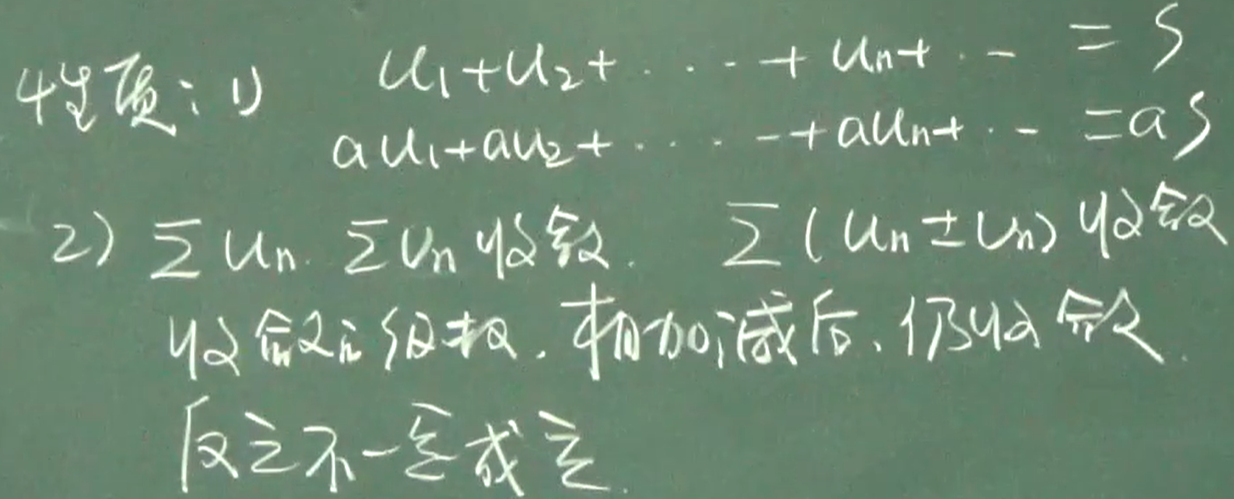 性质: 1) u₁+u₂+ ····+ uₙ+·· = S
au₁+au₂+ ····+auₙ+·· =aS
2) Σuₙ. Σvₙ收敛. Σ(uₙ±vₙ)收敛
收敛的级数.相加减后、仍收敛.
反之不一定成立.